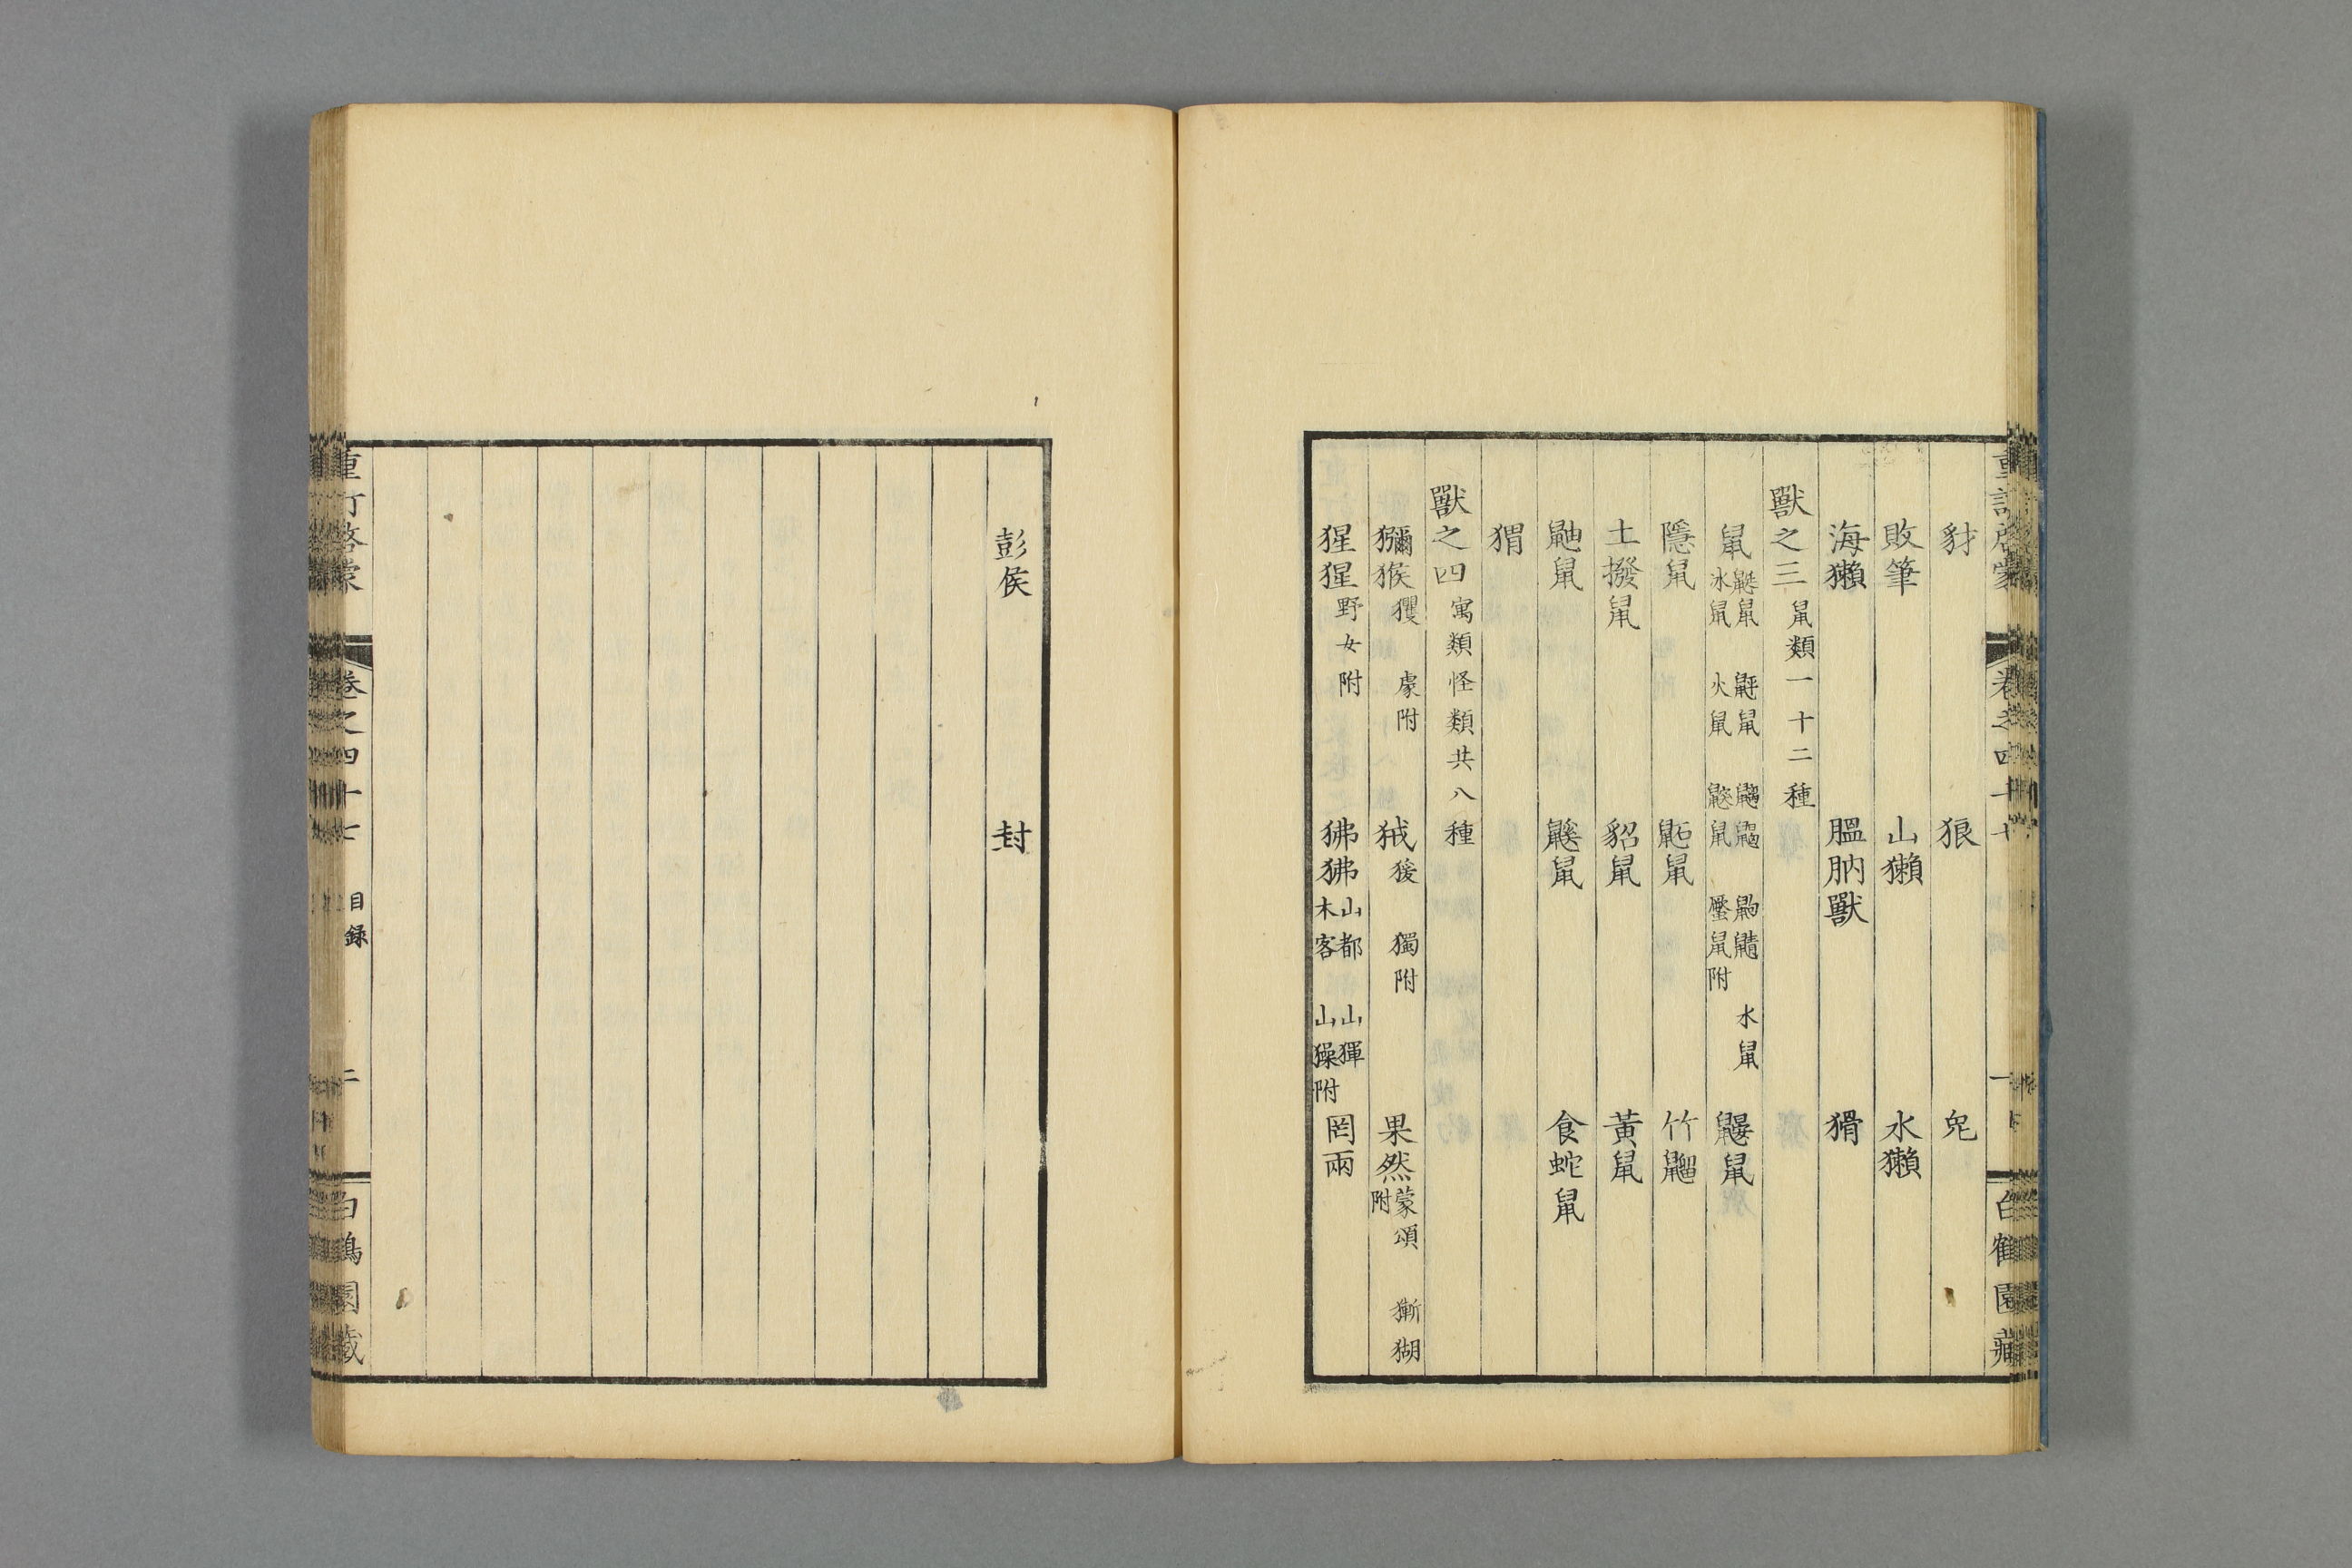 豺 狼 兔
敗筆 山獺 水獺
海獺 膃肭獸 猾
獸之三 鼠類一十二種
鼠 鼮鼠 鼩鼱 水鼠 冰鼠 火鼠 鼷鼠附 鼹鼠
隱鼠 鼫鼠 竹䶉
土撥鼠 貂鼠 黃鼠
鼬鼠 鼷鼠 食蛇鼠
猬
獸之四 寓類怪類共八種
獼猴 玃 豦附 狨 猨 獨附 果然 蒙頌 獑猢附
猩猩 野女附 狒狒 山都 山𤟤 木客 山𤢖附 罔兩
重訂啓蒙 卷之四十七 一 白鶴園藏
彭侯 封
重訂啓蒙 卷之四十七 目録 二 白鶴園藏